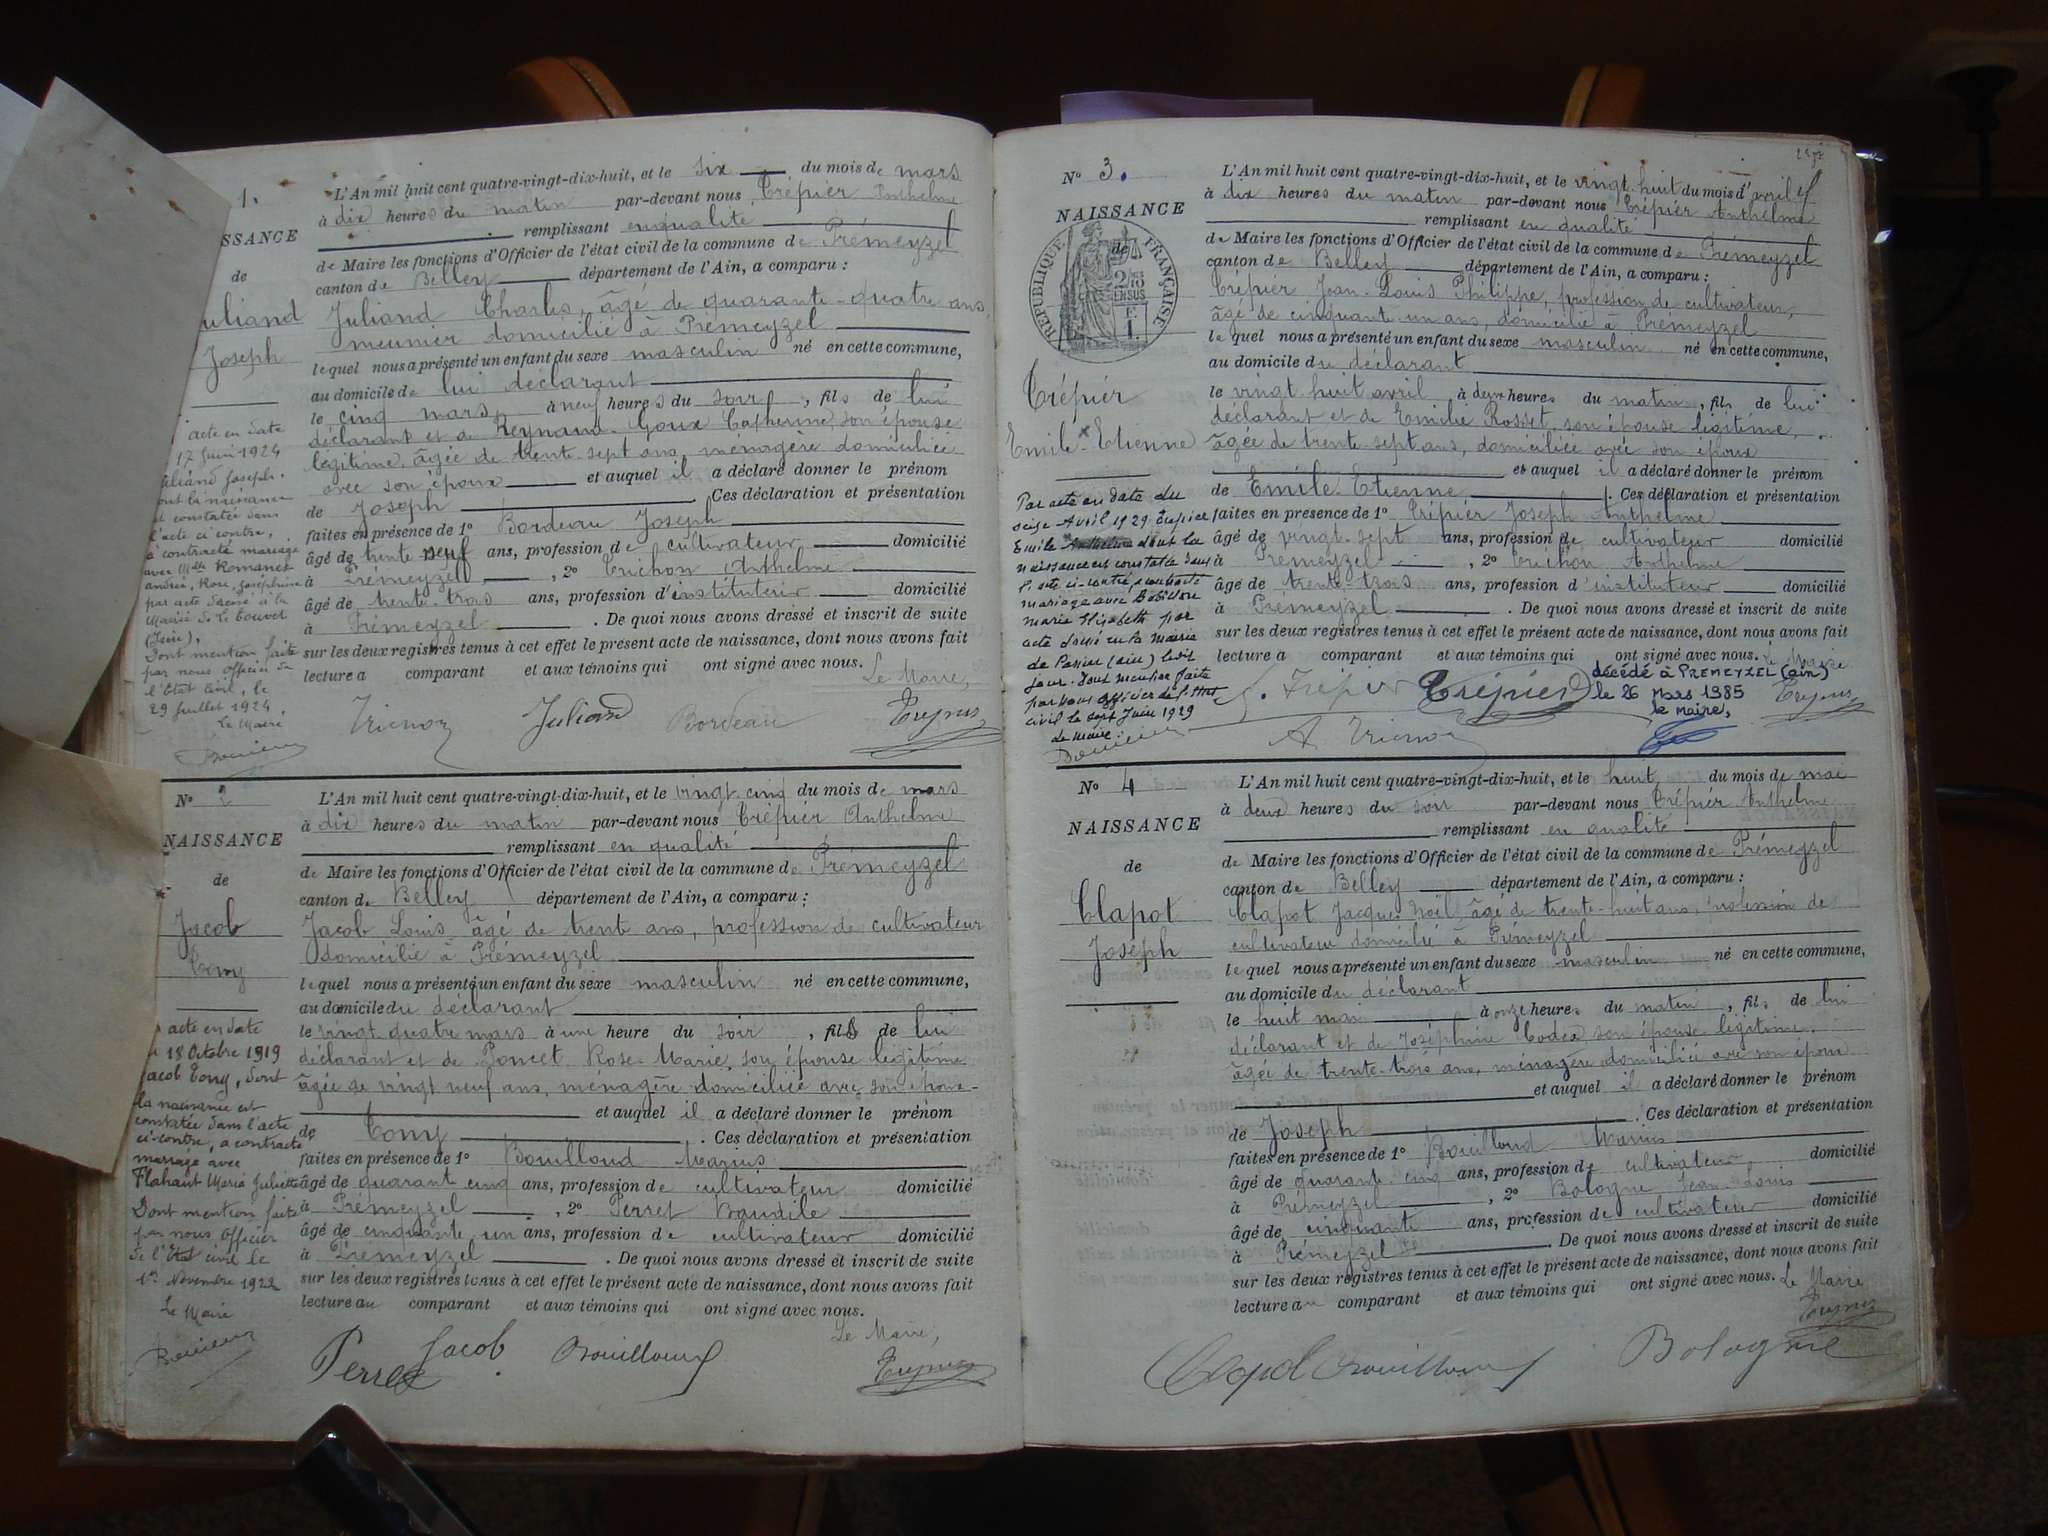 1.
L'An mil huit cent quatre-vingt-dix-huit, et le six du mois de mars
à dix heures du matin par-devant nous Trépier Anthelme
remplissant en qualité
SSANCE
de Maire les fonctions d'Officier de l'état civil de la commune de Prémeyzel
de
canton de Belley département de l'Ain, a comparu :
uliand
Juliand Charles, âgé de quarante-quatre ans,
Joseph
meunier domicilié à Prémeyzel
le quel nous a présenté un enfant du sexe masculin né en cette commune,
au domicile de lui déclarant
le cinq mars, à neuf heures du soir, fils de lui
déclarant et de Reynaud-Goux Catherine, son épouse
légitime, âgée de trente-sept ans, ménagère domiciliée
avec son époux et auquel il a déclaré donner le prénom
de Joseph. Ces déclaration et présentation
faites en présence de 1° Bordeau Joseph
âgé de trente neuf ans, profession de cultivateur domicilié
à Prémeyzel, 2° Trichon Anthelme
âgé de trente-trois ans, profession d'instituteur domicilié
à Prémeyzel. De quoi nous avons dressé et inscrit de suite
sur les deux registres tenus à cet effet le présent acte de naissance, dont nous avons fait
lecture a comparant et aux témoins qui ont signé avec nous. Le Maire,
acte en date
17 Juin 1924
Juliand Joseph,
dont la naissance
est constatée dans
l'acte ci contre,
a contracté mariage
avec Melle Romanet
andréa, Rose, Joséphine
par acte dressé à la
Mairie de Le Touvet
(Isère),
Dont mention faite
par nous Officier de
l'Etat Civil, le
29 Juillet 1924,
Le Maire
Trichon Juliand Bordeau
N° 2
L'An mil huit cent quatre-vingt-dix-huit, et le vingt-cinq du mois de mars
à dix heures du matin par-devant nous Trépier Anthelme
NAISSANCE
remplissant en qualité
de Maire les fonctions d'Officier de l'état civil de la commune de Prémeyzel
de
canton de Belley département de l'Ain, a comparu :
Jacob
Jacob Louis, âgé de trente ans, profession de cultivateur
Tony
domicilié à Prémeyzel
le quel nous a présenté un enfant du sexe masculin né en cette commune,
au domicile du déclarant
le vingt-quatre mars à une heure du soir, fils de lui
déclarant et de Poncet Rose-Marie, son épouse légitime
âgée de vingt neuf ans, ménagère domiciliée avec son époux
et auquel il a déclaré donner le prénom
de Tony. Ces déclaration et présentation
faites en présence de 1° Bouilloud Marius
âgé de quarante cinq ans, profession de cultivateur domicilié
à Prémeyzel, 2° Perret Baudile
âgé de cinquante un ans, profession de cultivateur domicilié
à Prémeyzel. De quoi nous avons dressé et inscrit de suite
sur les deux registres tenus à cet effet le présent acte de naissance, dont nous avons fait
lecture au comparant et aux témoins qui ont signé avec nous.
Le Maire,
acte en date
18 Octobre 1919
Jacob Tony, dont
la naissance est
constatée dans l'acte
ci-contre, a contracté
mariage avec
Flahaut Maria Juliette
Dont mention faite
par nous Officier
de l'Etat civil le
1er Novembre 1922
Le Maire
Perret Jacob Bouilloud
N° 3.
L'An mil huit cent quatre-vingt-dix-huit, et le vingt-huit du mois d'avril
à dix heures du matin par-devant nous Trépier Anthelme
NAISSANCE
remplissant en qualité
de
de Maire les fonctions d'Officier de l'état civil de la commune de Prémeyzel
canton de Belley département de l'Ain, a comparu :
RÉPUBLIQUE FRANÇAISE
Trépier Jean-Louis Philippe, profession de cultivateur,
âgé de cinquante-un ans, domicilié à Prémeyzel
le quel nous a présenté un enfant du sexe masculin né en cette commune,
au domicile du déclarant
Trépier
Emile-Etienne
le vingt huit avril à deux heures du matin, fils de lui
déclarant et de Emilie Rosset son épouse légitime,
âgée de trente-sept ans, domiciliée avec son époux
et auquel il a déclaré donner le prénom
de Emile-Etienne. Ces déclaration et présentation
faites en présence de 1° Trépier Joseph Anthelme
âgé de vingt-sept ans, profession de cultivateur domicilié
à Prémeyzel, 2° Trichon Anthelme
âgé de trente-trois ans, profession d'instituteur domicilié
à Prémeyzel. De quoi nous avons dressé et inscrit de suite
sur les deux registres tenus à cet effet le présent acte de naissance, dont nous avons fait
lecture a comparant et aux témoins qui ont signé avec nous. Le Maire
Par acte en date du
seize Avril 1929 Trepier
Emile dont la
naissance est constatée dans
l'acte ci-contre, a contracté
mariage avec Bobillon
marie Elisabeth par
acte dressé en la mairie
de (ain) le dit
jour. Dont mention faite
par nous officier de l'Etat
civil le sept Juin 1929
Le Maire
décédé à PREMEYZEL (ain)
le 26 mars 1985
le maire,
Trépier Trépier
A Trichon
N° 4
L'An mil huit cent quatre-vingt-dix-huit, et le huit du mois de mai
à deux heures du soir par-devant nous Trépier Anthelme
NAISSANCE
remplissant en qualité
de
de Maire les fonctions d'Officier de l'état civil de la commune de Prémeyzel
canton de Belley département de l'Ain, a comparu :
Clapot
Clapot Jacques Noël, âgé de trente-huit ans, profession de
Joseph
cultivateur domicilié à Prémeyzel
le quel nous a présenté un enfant du sexe masculin né en cette commune,
au domicile du déclarant
le huit mai à onze heures du matin, fils de lui
déclarant et de Joséphine Codex son épouse légitime,
âgée de trente-trois ans, ménagère domiciliée avec son époux
et auquel il a déclaré donner le prénom
de Joseph. Ces déclaration et présentation
faites en présence de 1° Bouilloud Marius
âgé de quarante-cinq ans, profession de cultivateur, domicilié
à Prémeyzel, 2° Bologne Jean-Louis
âgé de cinquante ans, profession de cultivateur domicilié
à Prémeyzel. De quoi nous avons dressé et inscrit de suite
sur les deux registres tenus à cet effet le présent acte de naissance, dont nous avons fait
lecture au comparant et aux témoins qui ont signé avec nous. Le Maire
Clapot Bouilloud Bologne